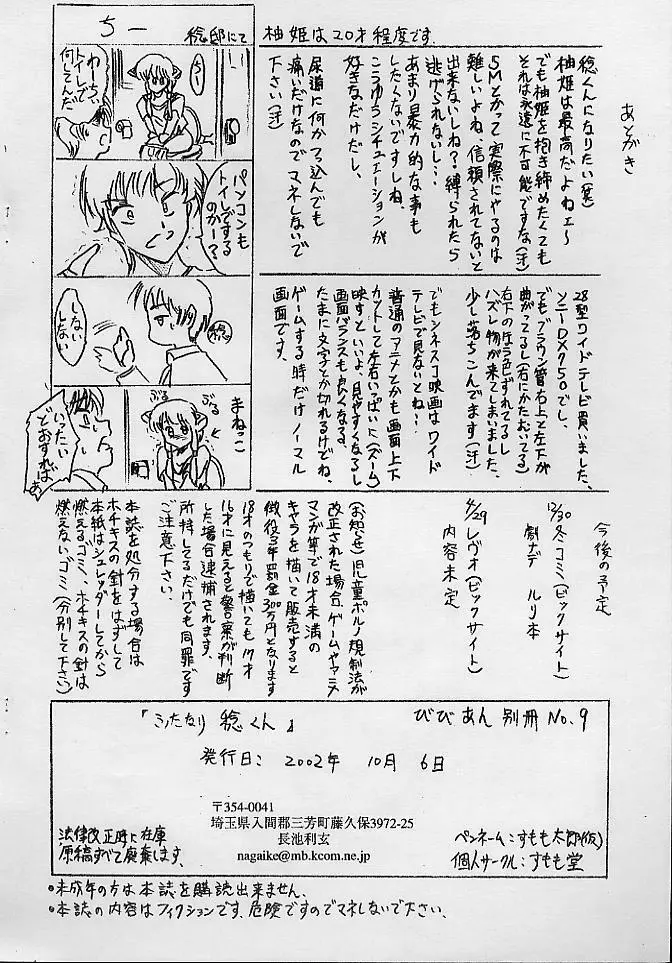 あとがき
稔くんになりたい(笑)
柚姫は最高だよねェ～
でも柚姫を抱き締めたくても
それは永遠に不可能ですな(汗)
SMとかって実際にやるのは
難しいよね、信頼されてないと
出来ないしね?縛られたら
逃げられないし…
あまり暴力的な事も
したくないですしね、
こうゆうシチュエーションが
好きなだけだし、
尿道に何かつっ込んでも
痛いだけなのでマネしないで
下さい(汗)
柚姫は20才程度です.
稔邸にて
ちー
ち～
わーちぃ
トイレで
何してんだ
パソコンも
トイレするの
のかー?
しない
しない
稔
まねっこ
ぶる
ぶる
いったい
どおすれば
ぁ
28型ワイドテレビ買いました、
ソニーDX750でし、
でもブラウン管右上と左下が
曲がってるし(右にかたむいてる)
右下の圧ラ色ずれてるし
ハズレ物が来てしまいました、
少し落ちこんでます(汗)
でもシネスコ映画はワイド
テレビで見ないとね!
普通のアニメとかも画面上下
カットして左右いっぱいに(ズーム)
映すといいよ、見やすくなるし
画面バランスも良くなる、
たまに文字とか切れるけどね、
ゲームする時だけノーマル
画面です、
今後の予定
12/30冬コミ(ビックサイト)
劇ナデ ルリ本
4/29レヴォ(ビックサイト)
内容未定
(お知らせ)児童ポルノ規制法が
改正された場合、ゲームやアニメ
マンガ等で18才未満の
キャラを描いて販売すると
懲役3年罰金300万円となります
18才のつもりで描いても17才
16才に見えると警察が判断
した場合逮捕されます、
所持してるだけでも同罪です
ご注意下さい、
本誌を処分する場合は
ホチキスの針をはずして
本紙はシュレッダーしてから
燃えるゴミ、ホチキスの針は
燃えないゴミ(分別して下さい)
「ふたなり 稔くん」
びびあん 別冊 No.9
発行日: 2002年 10月 6日
〒354-0041
埼玉県入間郡三芳町藤久保3972-25
長池利玄
nagaike@mb.kcom.ne.jp
法律改正時に在庫
原稿すべて廃棄します.
ペンネーム:すもも太郎(仮)
個人サークル:すもも堂
•未成年の方は本誌を購読出来ません.
•本誌の内容はフィクションです.危険ですのでマネしないで下さい.